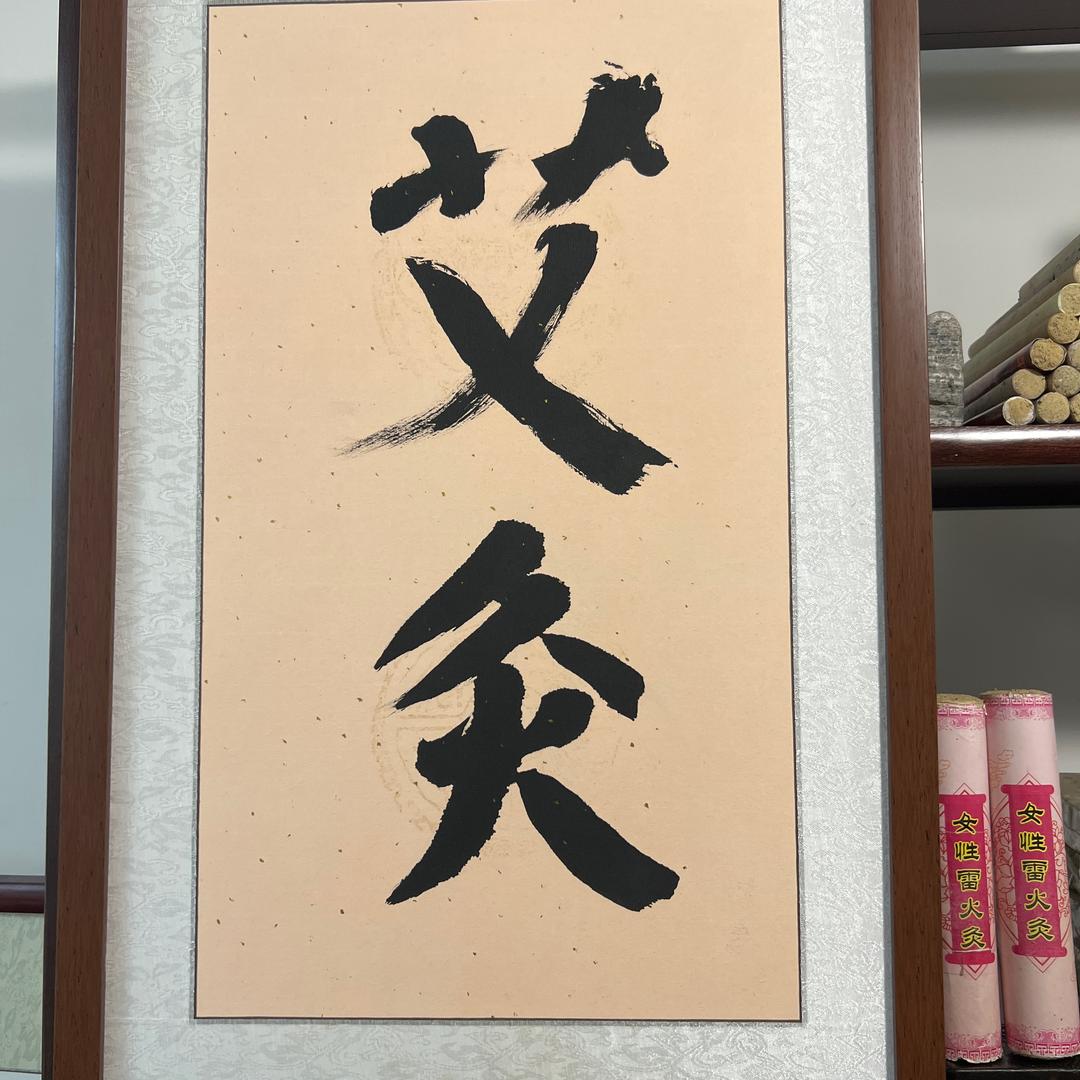 艾灸
女性雷火灸
女性雷火灸